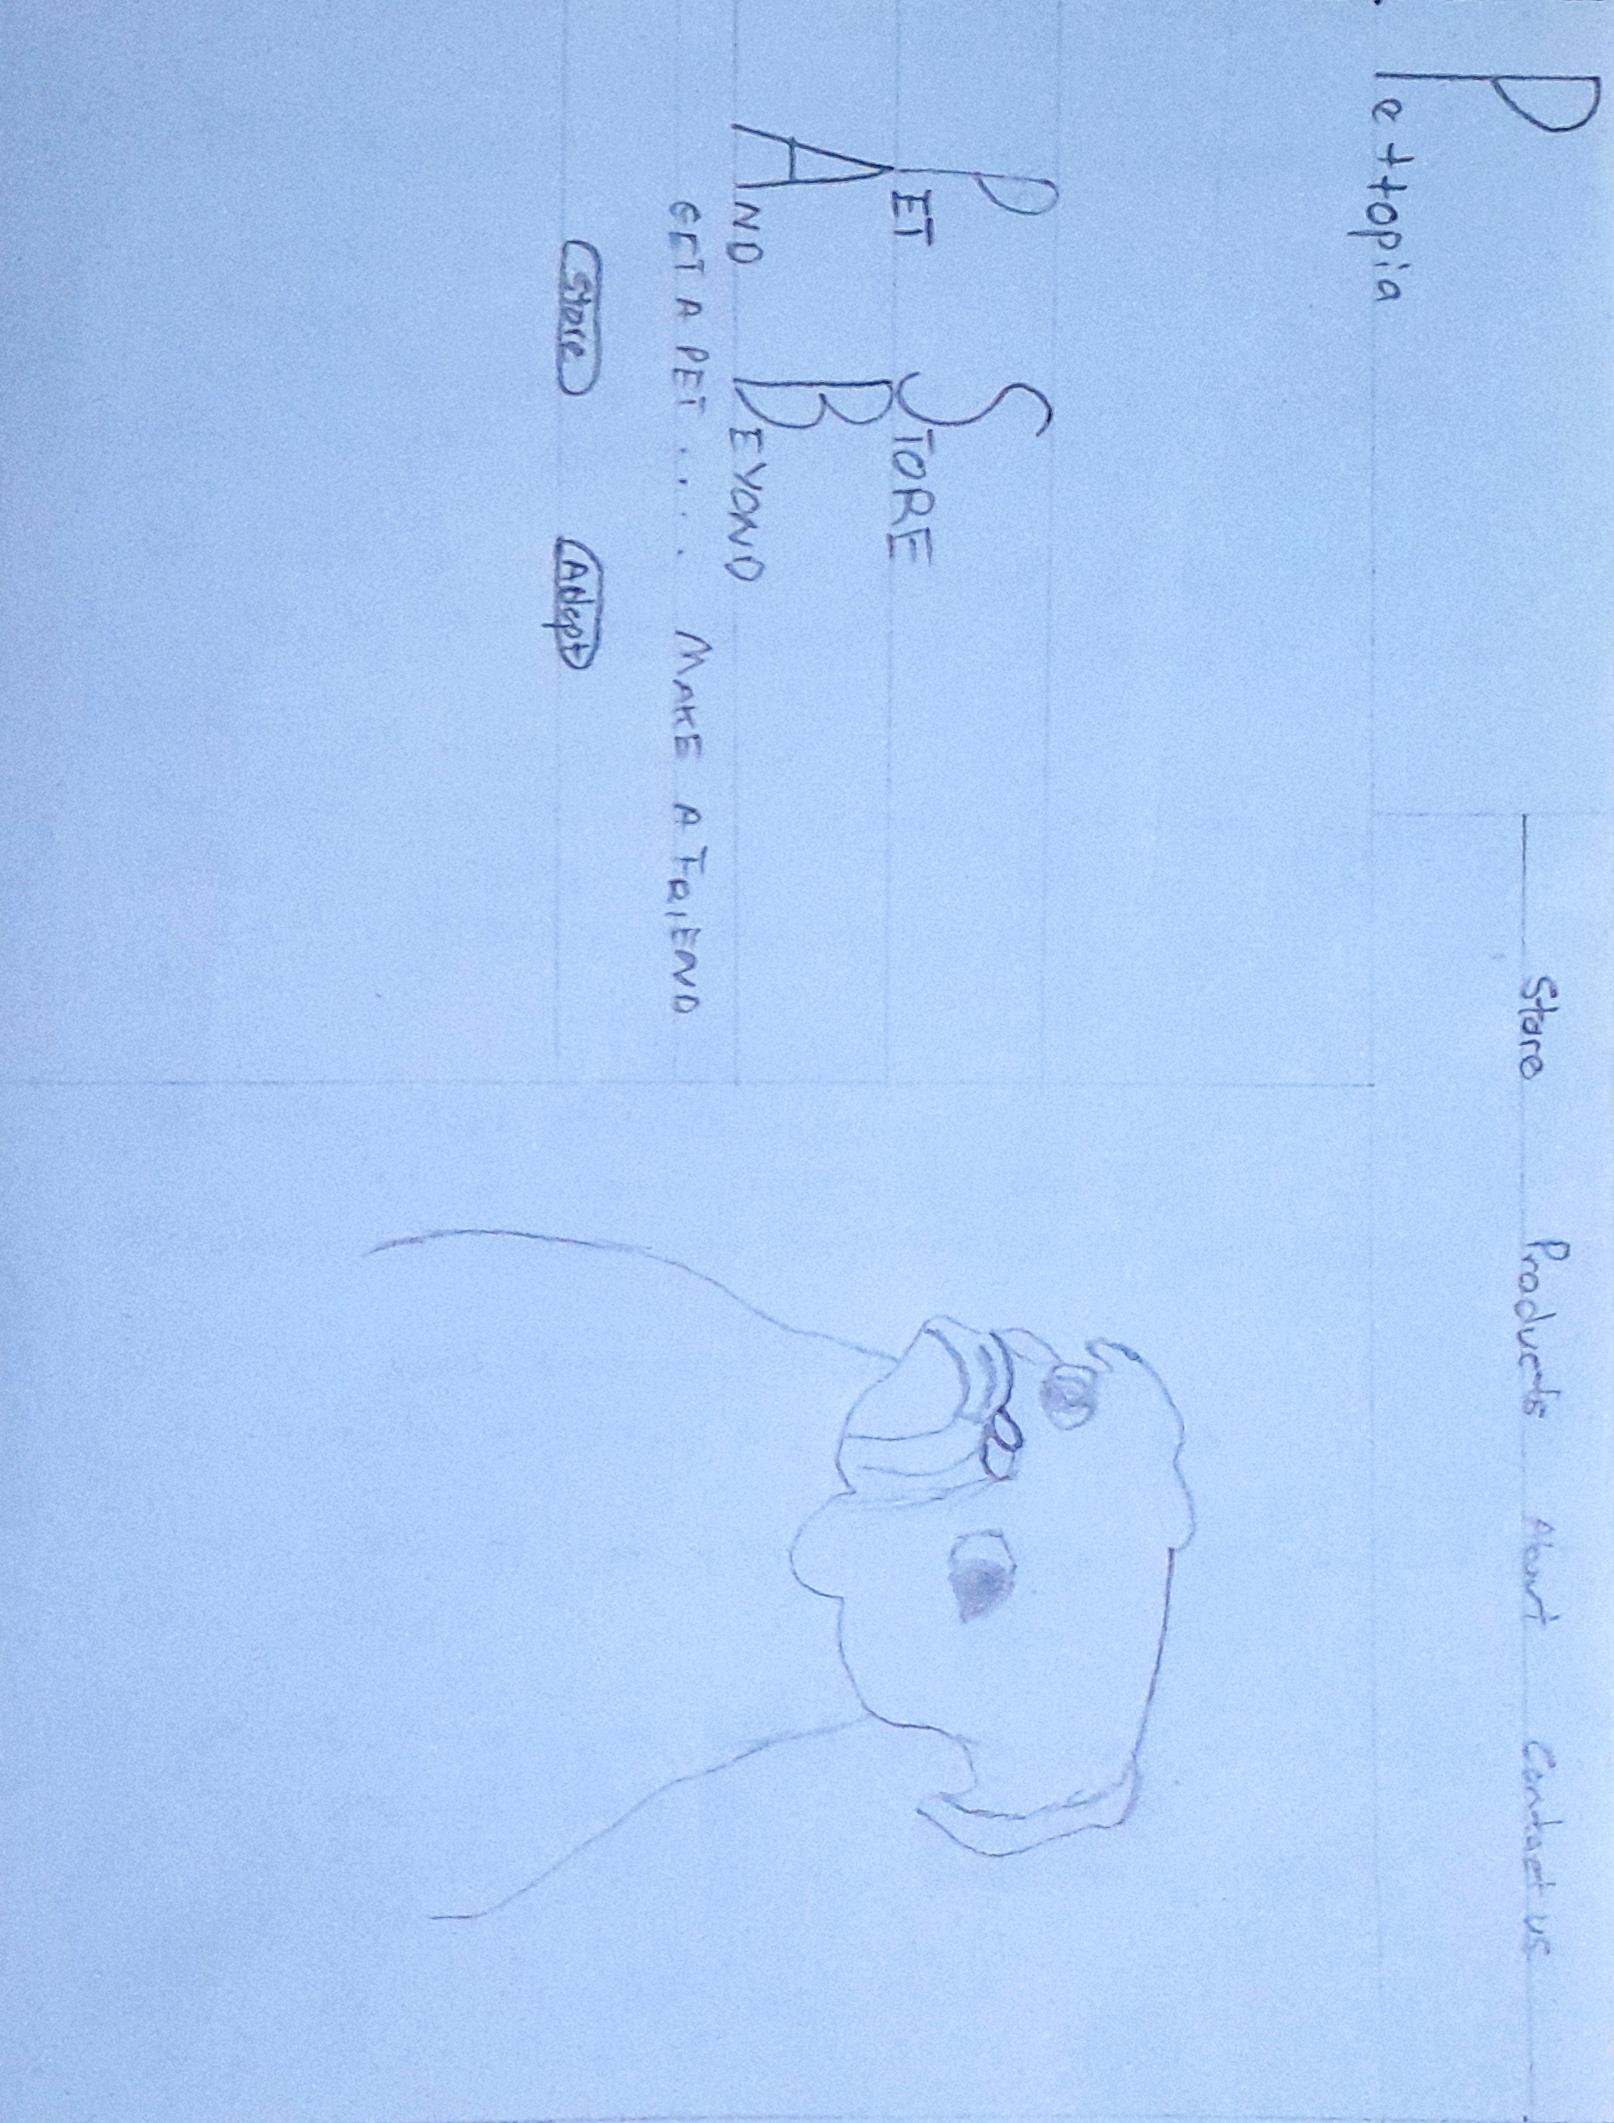 Pettopia
Store Products About Contact us
PET STORE
AND BEYOND
GET A PET .... MAKE A FRIEND
Store Adopt